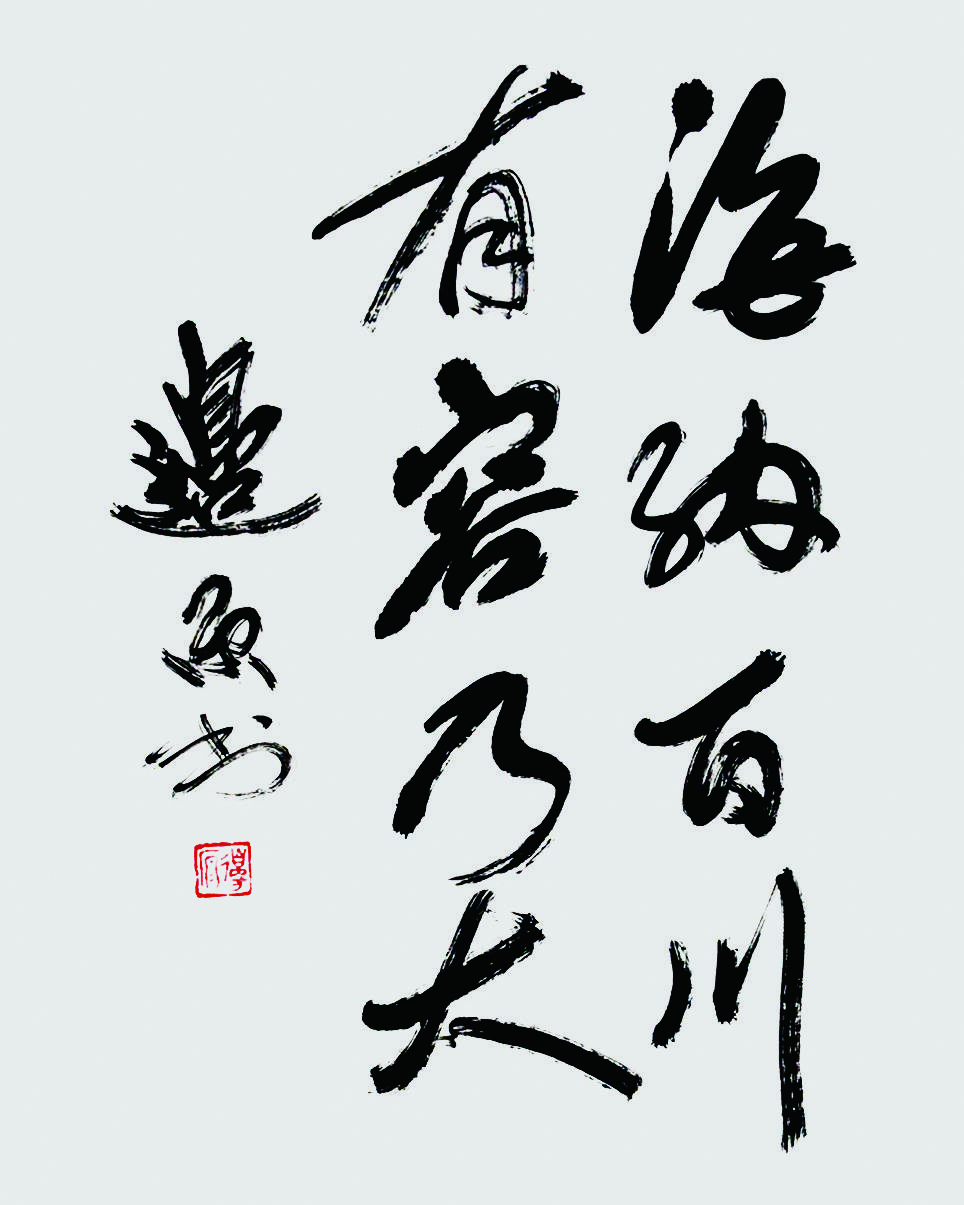 海纳百川
有容乃大
边原书